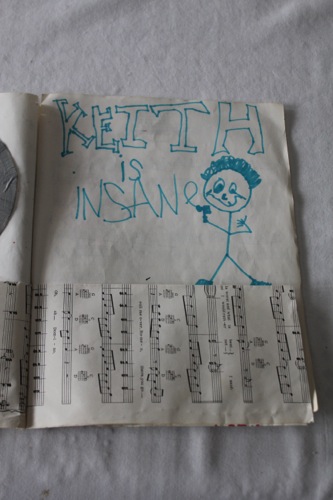 KEITH
IS
INSANe